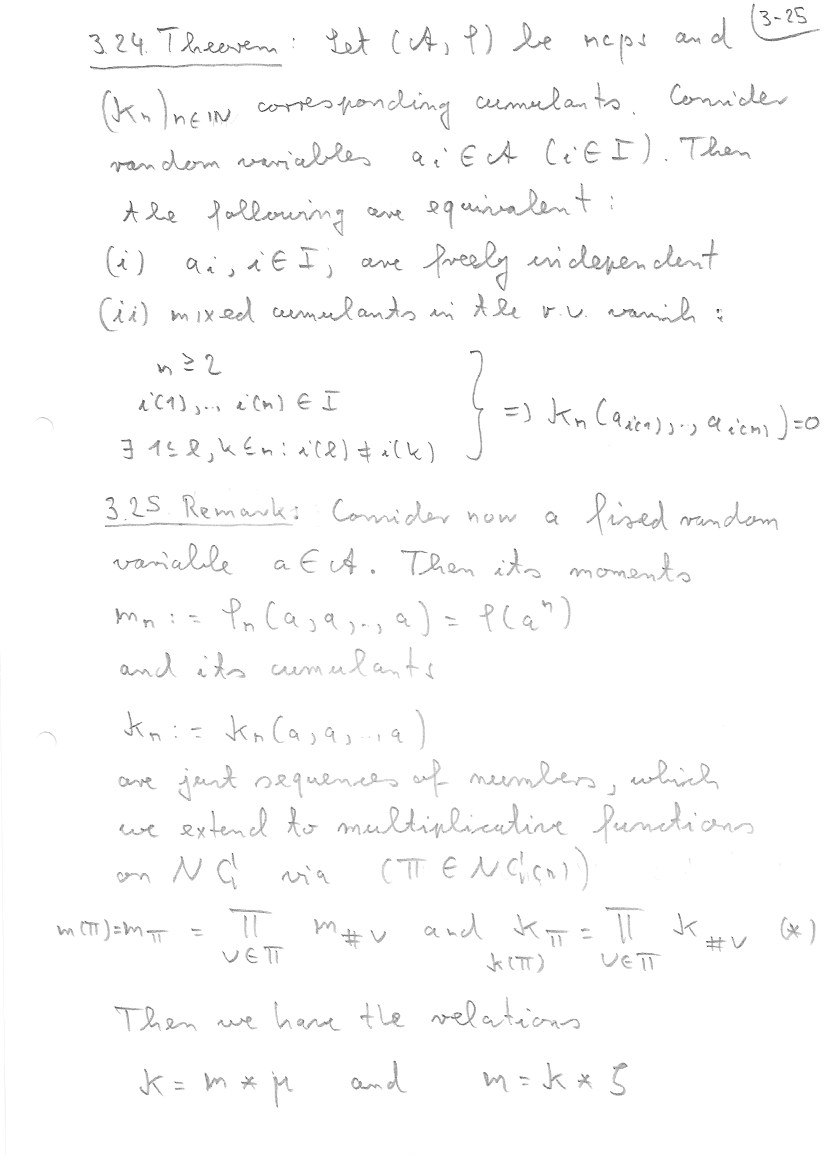 3-25
3.24. Theorem: Let (A, φ) be ncps and
(κn)n∈ℕ corresponding cumulants. Consider
random variables ai ∈ A (i ∈ I). Then
the following are equivalent:
(i) ai, i ∈ I, are freely independent
(ii) mixed cumulants in the r.v. vanish:
n ≥ 2
i(1),.., i(n) ∈ I
∃ 1 ≤ l, k ≤ n : i(l) ≠ i(k) } => κn(ai(1),.., ai(n)) = 0
3.25 Remark: Consider now a fixed random
variable a ∈ A. Then its moments
mn := φn(a, a,.., a) = φ(aⁿ)
and its cumulants
κn := κn(a, a,.., a)
are just sequences of numbers, which
we extend to multiplicative functions
on NC via (π ∈ NC(n))
m(π) = mπ = ∏V∈π m#V and κπ = ∏V∈π κ#V (*)
κ(π)
Then we have the relations
κ = m * μ and m = κ * ζ